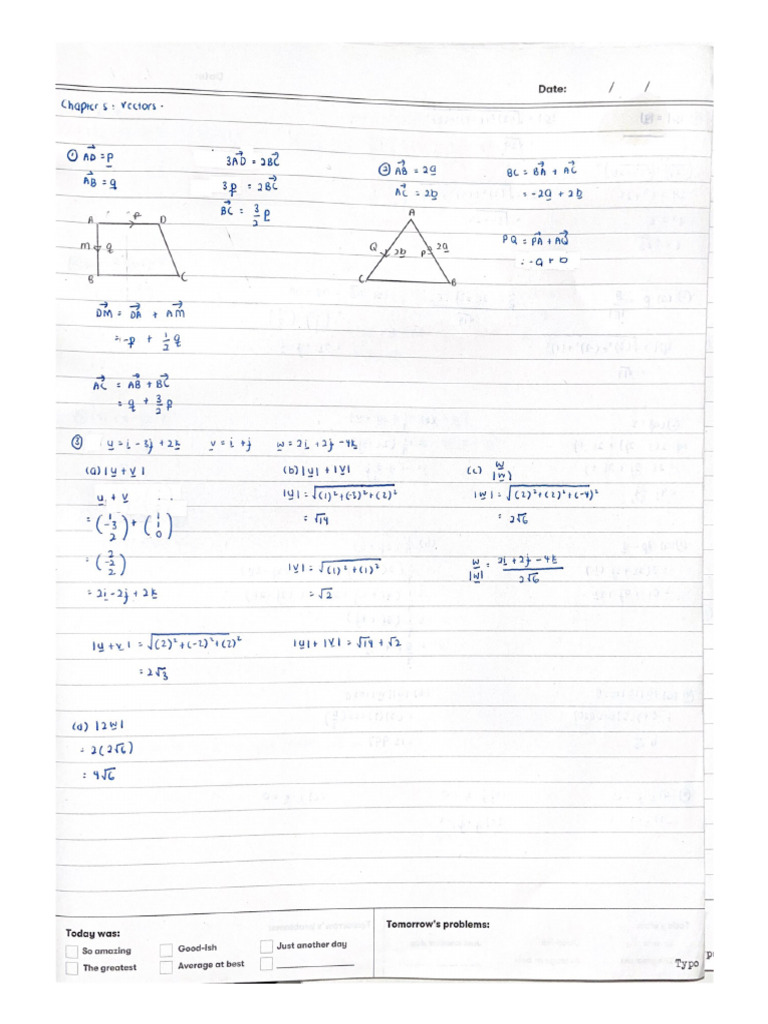 Date: / /
Chapter 5 : Vectors.
① AD = p
AB = q
3AD = 2BC
3p = 2BC
BC = 3/2 p
A p D
M q
B C
DM = DA + AM
= -p + 1/2 q
AC = AB + BC
= q + 3/2 p
② AB = 2a
AC = 2b
BC = BA + AC
= -2a + 2b
PQ = PA + AQ
= -a + b
A
Q 2b P 2a
C B
③ u = i - 3j + 2k v = i + j w = 2i + 2j - 4k
(a) |u + v|
u + v
= (1 -3 2) + (1 1 0)
= (2 -2 2)
= 2i - 2j + 2k
|u + v| = √(2)² + (-2)² + (2)²
= 2√3
(b) |u| + |v|
|u| = √(1)² + (-3)² + (2)²
= √14
|v| = √(1)² + (1)²
= √2
|u| + |v| = √14 + √2
(c) w/|w|
|w| = √(2)² + (2)² + (-4)²
= 2√6
w/|w| = 2i + 2j - 4k / 2√6
(d) |2w|
= 2(2√6)
= 4√6
Today was:
So amazing Good-ish Just another day
The greatest Average at best
Tomorrow's problems:
Typo